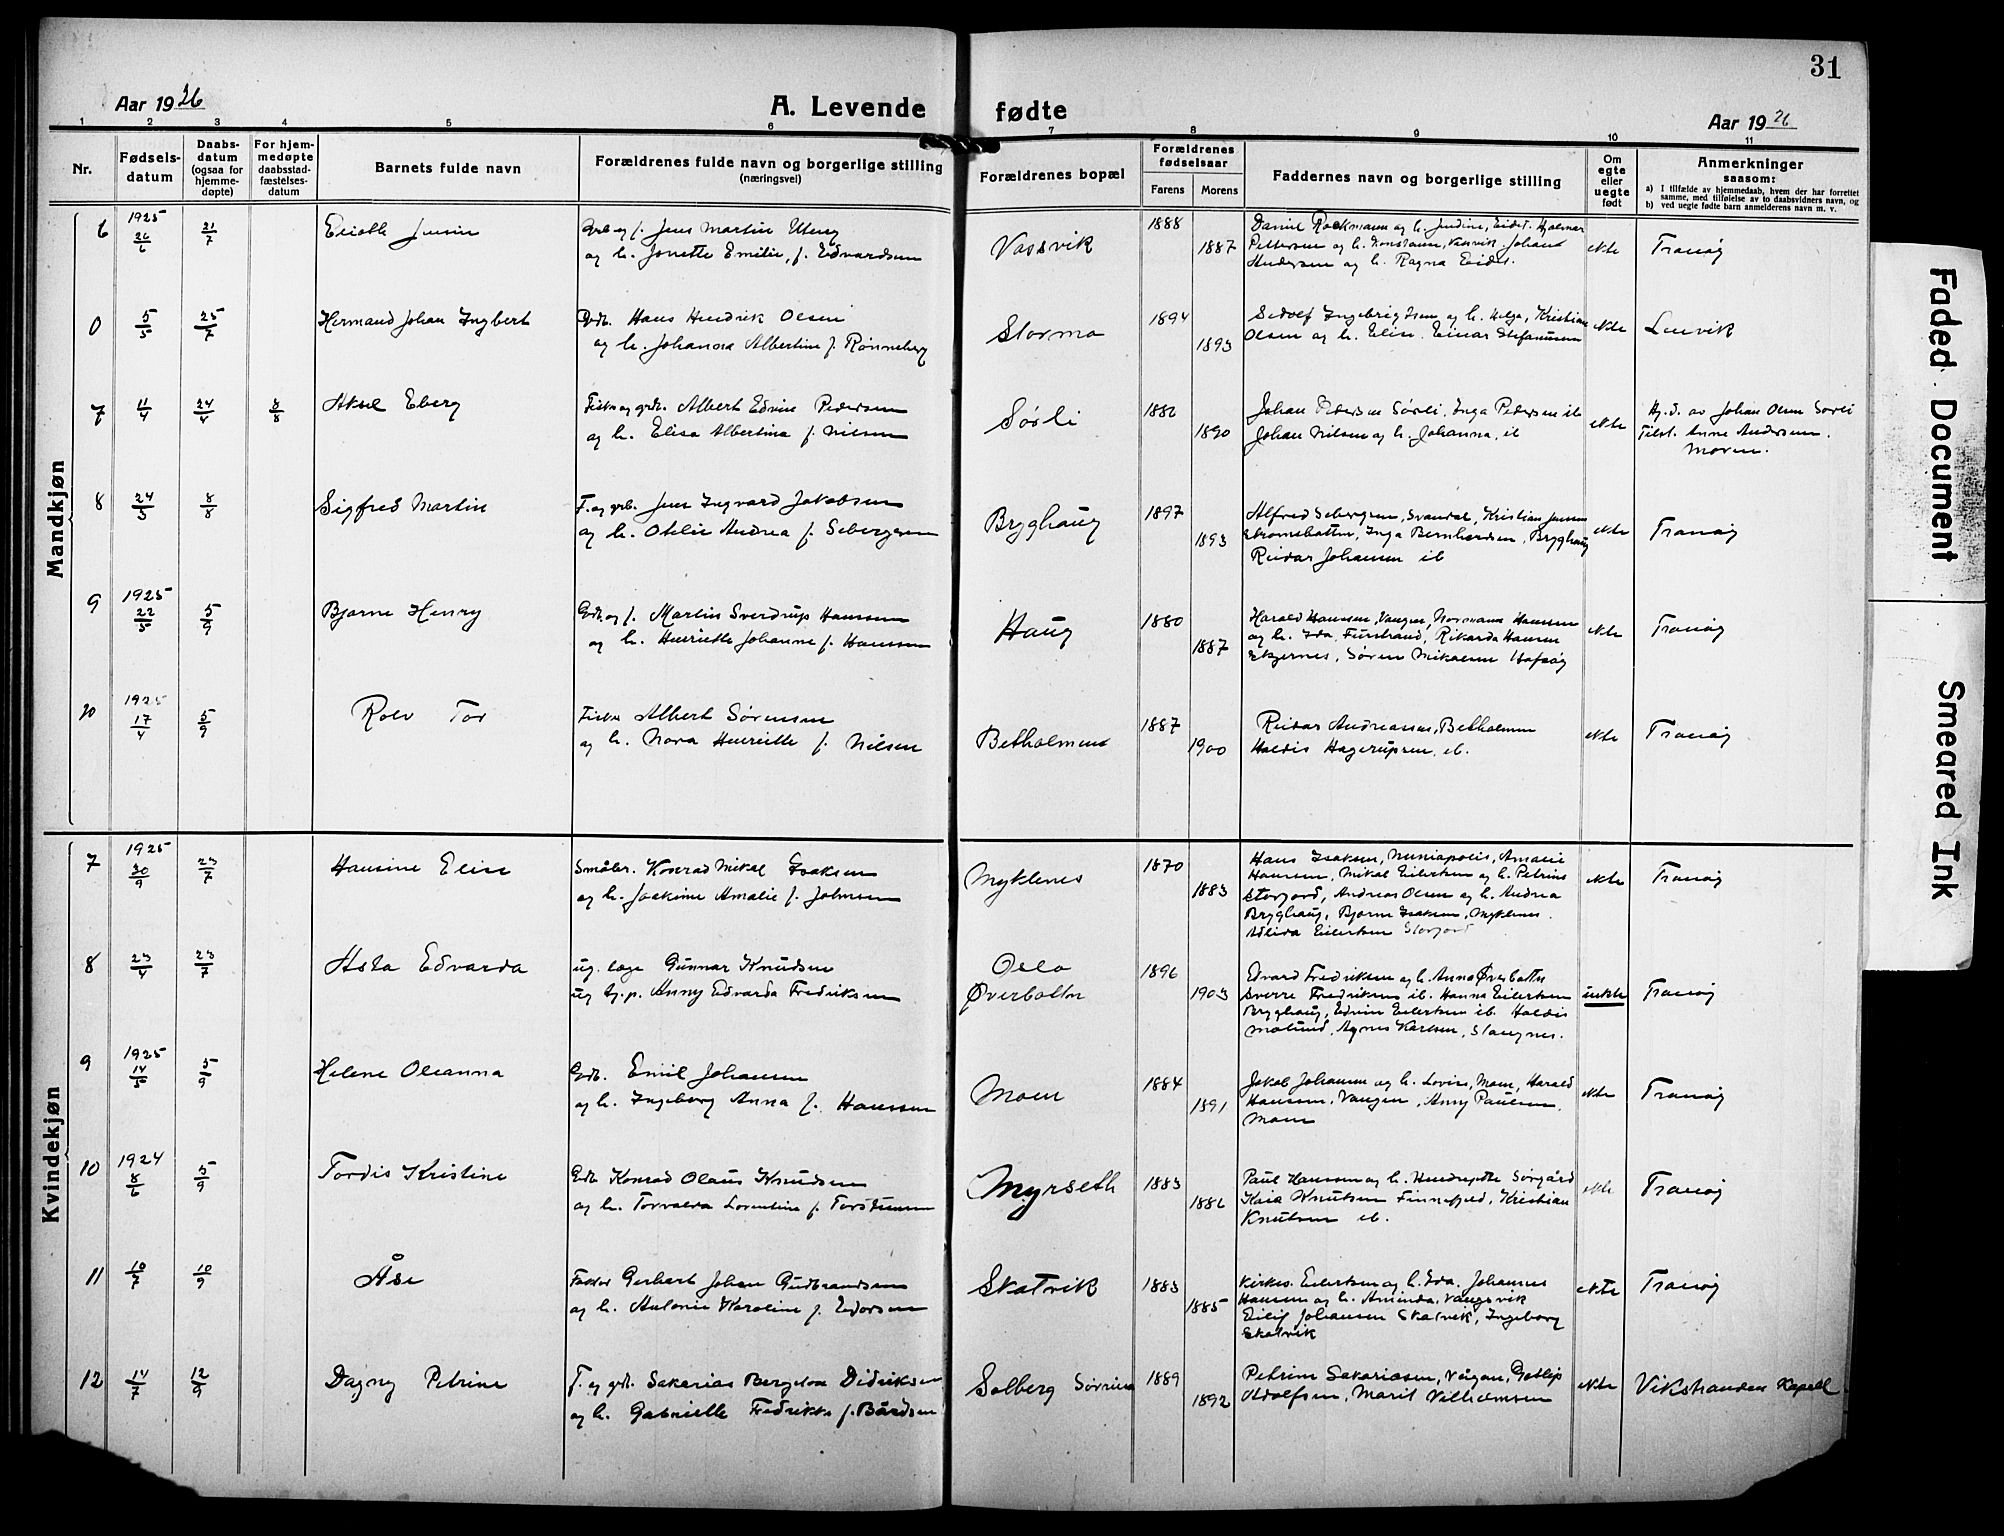 31
Aar 1926
A. Levende fødte
Aar 1926
1 2 3 4 5 6 7 8 9 10 11
Nr.
Fødsels-
datum
Daabs-
datum
(ogsaa for
hjemme-
døpte)
For hjem-
medøpte
daabsstad-
fæstelses-
datum
Barnets fulde navn
Forældrenes fulde navn og borgerlige stilling
(næringsvei)
Forældrenes bopæl
Forældrenes
fødselsaar
Farens Morens
Faddernes navn og borgerlige stilling
Om
egte
eller
uegte
født
Anmerkninger
saasom:
a) I tilfælde av hjemmedaab, hvem der har forrettet
samme, med tilføielse av to daabsvidners navn, og
b) ved uegte fødte barn anmelderens navn m. v.
Mandkjøn
6 1925 26/6 21/7
Jens Martin
og h. Jonette Emilie, f. Edvardsen
Vassvik
1888
1887
Daniel Rockmann og h. Jindine, Eidet. Hjalmar
Pettersen og h. Konstanse, Vasvik. Johant
Andersen og h. Ragna Eidet.
ekte
Tranøy
0 5/5 25/7
Hermand Johan Ingbert
Grdb. Hans Hendrik Olsen
og h. Johanna Albertine f. Rønneberg
Stormo
1894
1893
Sedolf Ingebrigtsen og h. Helga, Kristian
Olsen og h. Elise. Einar Stefanussen
ekte
Lenvik
7 11/4 24/4 8/8
Aksel Eberg
Fisker og grdb. Albert Edvin Pedersen
og h. Elisa Albertina f. Nilsen
Sørli
1886
1890
Johan Pedersen Sørli, Inga Pedersen ib
Johan Nilsen og h. Johanna, ib
ekte
Hj.d. av Johan Olsen Sørli
Tilst. Anne Andersen.
Moren.
8 24/5 8/8
Sigfred Martin
F. og grb. Jens Ingvard Jakobsen
og h. Otelie Andrea f. Sebergsen
Bryghaug
1897
1893
Alfred Sebergsen, Svandal, Kristian Jensen
Strømsbotten, Inga Bernhardsen, Bryghaug
Reidar Johansen ib
ekte
Tranøy
9 1925 22/5 5/9
Bjarne Henry
Grdb. og f. Martin Sverdrup Hanssen
og h. Henriette Johanne f. Hanssen
Haug
1880
1887
Harald Hanssen, Vangen, Normann Hanssen
og h. Ida, Furstrand, Rikarda Hansen
Skjernes, Søren Mikalsen Hofsøy
ekte
Tranøy
10 1925 17/4 5/9
Rolv Tor
Fisker Albert Sørensen
og h. Nora Henriette f. Nilsen
Betholmend
1887
1900
Reidar Andreassen, Betholmen
Haldis Hagerupsen, ib.
ekte
Tranøy
Kvindekjøn
7 1925 30/9 23/7
Hansine Elise
Småbr. Konrad Mikal Isaksen
og h. Joakime Amalie f. Johnsen
Myklenes
1870
1883
Hans Isaksen, Miniapolis, Amalie
Hansen, Mikal Eilertsen og h. Petrine
Storfjord, Andreas Olsen og h. Andrea
Bryghaug, Bjarne Isaksen, Myklenes.
Adlida Eilertsen Storfjord
ekte
Tranøy
8 23/4 23/7
Asta Edvarda
ug. læge Gunnar Knudsen
ug tj.p. Anny Edvarda Fredriksen
Oslo
Øverbotten
1896
1903
Edvard Fredriksen og h. Anna Øverbotten
Sverre Fredriksen ib. Hanna Eilertsen
Bryghaug, Edvin Eilertsen ib. Haldis
Moland, Agnes Karlsen, Stangnes.
uekte
Tranøy
9 1925 14/5 5/9
Helene Oleanna
Grdb. Emil Johansen
og h. Ingeborg Anna f. Hanssen
Moen
1884
1891
Jakob Johansen og h. Lovise, Moen, Harald
Hanssen, Vangen, Anny Paulsen.
Moen
ekte
Tranøy
10 1924 8/6 5/9
Tordis Kristine
Grdb Konrad Olaus Knudsen
og h. Torvalda Lorentine f. Torstensen
Myrseth
1883
1886
Paul Hanssen og h. Sørgård
Kaia Knutsen Finnefjeld, Kristian
Knutsen ib.
ekte
Tranøy
11 10/7 10/9
Åse
Faktor Gerhart Johan Gudbrandsen
og h. Antonie Karoline f.
Skatvik
1883
1885
Kirkes. Eilertsen og h. Ida. Johannes
Hansen og h. Aminda, Vangsvik
Eilif Johansen Skatvik, Ingeborg
Skatvik
ekte
Tranøy
12 14/7 12/9
Dagny Petrine
F. og grdb. Sakarias Bergeton Didriksen
og h. Gabrielle Fredrikke f. Bårdsen
Solberg Sørreisa
1889
1892
Petrine Sakariasen, Vågan, Gotlip
Adolfsen, Marit Vilhelmsen
ekte
Vikstranden Kapell
Faded Document
Smeared Ink